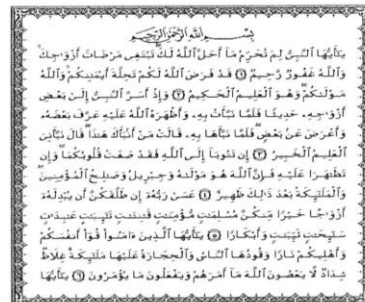 بِسْمِ اللَّهِ الرَّحْمَٰنِ الرَّحِيمِ
يَٰٓأَيُّهَا ٱلنَّبِىُّ لِمَ تُحَرِّمُ مَآ أَحَلَّ ٱللَّهُ لَكَ تَبْتَغِى مَرْضَاتَ أَزْوَٰجِكَ
وَٱللَّهُ غَفُورٌ رَّحِيمٌ ١ قَدْ فَرَضَ ٱللَّهُ لَكُمْ تَحِلَّةَ أَيْمَٰنِكُمْ وَٱللَّهُ
مَوْلَىٰكُمْ وَهُوَ ٱلْعَلِيمُ ٱلْحَكِيمُ ٢ وَإِذْ أَسَرَّ ٱلنَّبِىُّ إِلَىٰ بَعْضِ
أَزْوَٰجِهِۦ حَدِيثًا فَلَمَّا نَبَّأَتْ بِهِۦ وَأَظْهَرَهُ ٱللَّهُ عَلَيْهِ عَرَّفَ بَعْضَهُۥ
وَأَعْرَضَ عَنۢ بَعْضٍ فَلَمَّا نَبَّأَهَا بِهِۦ قَالَتْ مَنْ أَنۢبَأَكَ هَٰذَا قَالَ نَبَّأَنِىَ
ٱلْعَلِيمُ ٱلْخَبِيرُ ٣ إِن تَتُوبَآ إِلَى ٱللَّهِ فَقَدْ صَغَتْ قُلُوبُكُمَا وَإِن
تَظَٰهَرَا عَلَيْهِ فَإِنَّ ٱللَّهَ هُوَ مَوْلَىٰهُ وَجِبْرِيلُ وَصَٰلِحُ ٱلْمُؤْمِنِينَ
وَٱلْمَلَٰٓئِكَةُ بَعْدَ ذَٰلِكَ ظَهِيرٌ ٤ عَسَىٰ رَبُّهُۥٓ إِن طَلَّقَكُنَّ أَن يُبْدِلَهُۥٓ
أَزْوَٰجًا خَيْرًا مِّنكُنَّ مُسْلِمَٰتٍ مُّؤْمِنَٰتٍ قَٰنِتَٰتٍ تَٰٓئِبَٰتٍ عَٰبِدَٰتٍ
سَٰٓئِحَٰتٍ ثَيِّبَٰتٍ وَأَبْكَارًا ٥ يَٰٓأَيُّهَا ٱلَّذِينَ ءَامَنُوا۟ قُوٓا۟ أَنفُسَكُمْ
وَأَهْلِيكُمْ نَارًا وَقُودُهَا ٱلنَّاسُ وَٱلْحِجَارَةُ عَلَيْهَا مَلَٰٓئِكَةٌ غِلَاظٌ
شِدَادٌ لَّا يَعْصُونَ ٱللَّهَ مَآ أَمَرَهُمْ وَيَفْعَلُونَ مَا يُؤْمَرُونَ ٦ يَٰٓأَيُّهَا